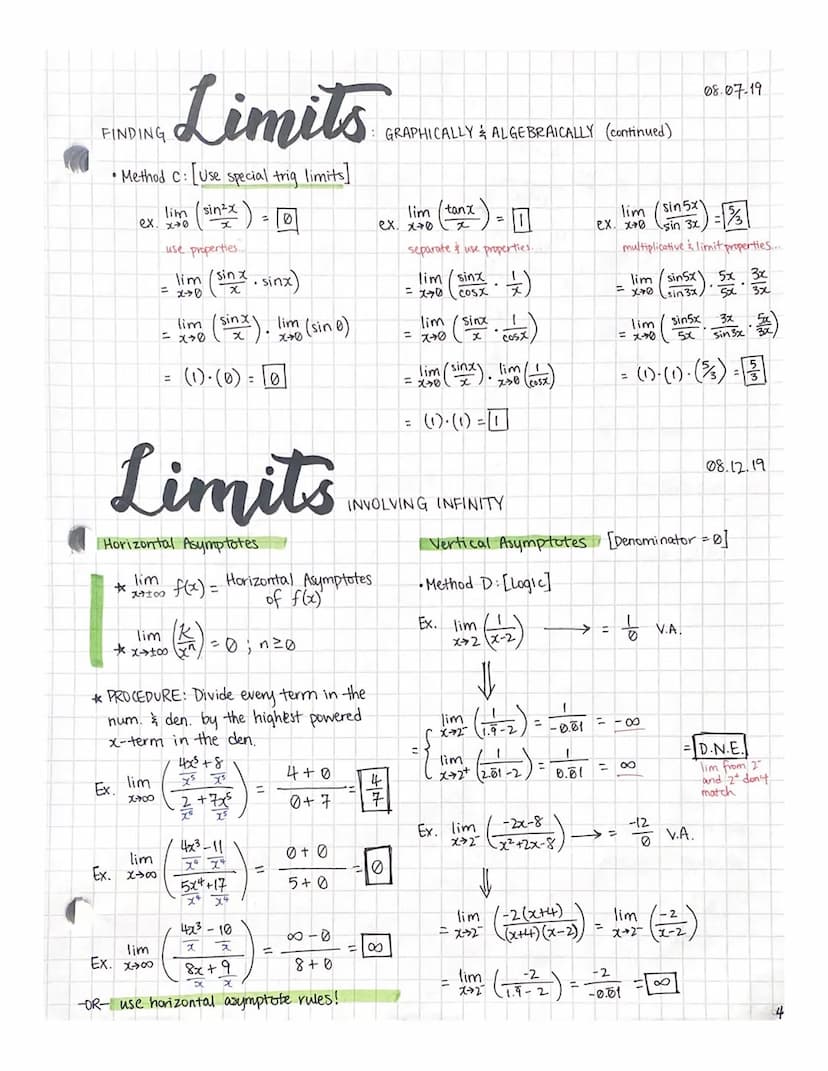 08.07.19
FINDING Limits: GRAPHICALLY & ALGEBRAICALLY (continued)
• Method C: [Use special trig limits]
ex. lim x→0 (sin²x / x) = 0
use properties...
= lim x→0 (sin x / x · sinx)
= lim x→0 (sinx / x) · lim x→0 (sin 0)
= (1)·(0) = 0
ex. lim x→0 (tanx / x) = 1
separate & use properties...
= lim x→0 (sinx / cosx · 1/x)
= lim x→0 (sinx / x · 1/cosx)
= lim x→0 (sinx / x) · lim x→0 (1/cosx)
= (1)·(1) = 1
ex. lim x→0 (sin5x / sin 3x) = 5/3
multiplicative & limit properties...
= lim x→0 (sin5x / sin3x) · 5x/5x · 3x/3x
= lim x→0 (sin5x / 5x · 3x / sin3x · 5x/3x)
= (1)·(1)·(5/3) = 5/3
08.12.19
Limits INVOLVING INFINITY
Horizontal Asymptotes
★ lim x→±∞ f(x) = Horizontal Asymptotes
of f(x)
★ lim x→±∞ (k / xⁿ) = 0 ; n≥0
★ PROCEDURE: Divide every term in the
num. & den. by the highest powered
x-term in the den.
Ex. lim x→∞ (4x⁵/x⁵ + 8/x⁵) / (2/x⁵ + 7x⁵/x⁵) = (4+0) / (0+7) = 4/7
Ex. lim x→∞ (4x³/x⁴ - 11/x⁴) / (5x⁴/x⁴ + 17/x⁴) = (0+0) / (5+0) = 0
Ex. lim x→∞ (4x³/x - 10/x) / (8x/x + 9/x) = (∞-0) / (8+0) = ∞
-OR- use horizontal asymptote rules!
Vertical Asymptotes [Denominator = 0]
• Method D: [Logic]
Ex. lim x→2 (1 / x-2) → = 1/0 V.A.
⇓
= { lim x→2⁻ (1 / 1.9̅-2) = 1 / -0.0̅1 = -∞
lim x→2⁺ (1 / 2.0̅1-2) = 1 / 0.0̅1 = ∞
= D.N.E.
lim from 2⁻
and 2⁺ don't
match
Ex. lim x→2⁻ (-2x-8 / x²+2x-8) → = -12/0 V.A.
⇓
= lim x→2⁻ (-2(x+4) / (x+4)(x-2)) = lim x→2⁻ (-2 / x-2)
= lim x→2⁻ (-2 / 1.9̅-2) = -2 / -0.0̅1 = ∞
4